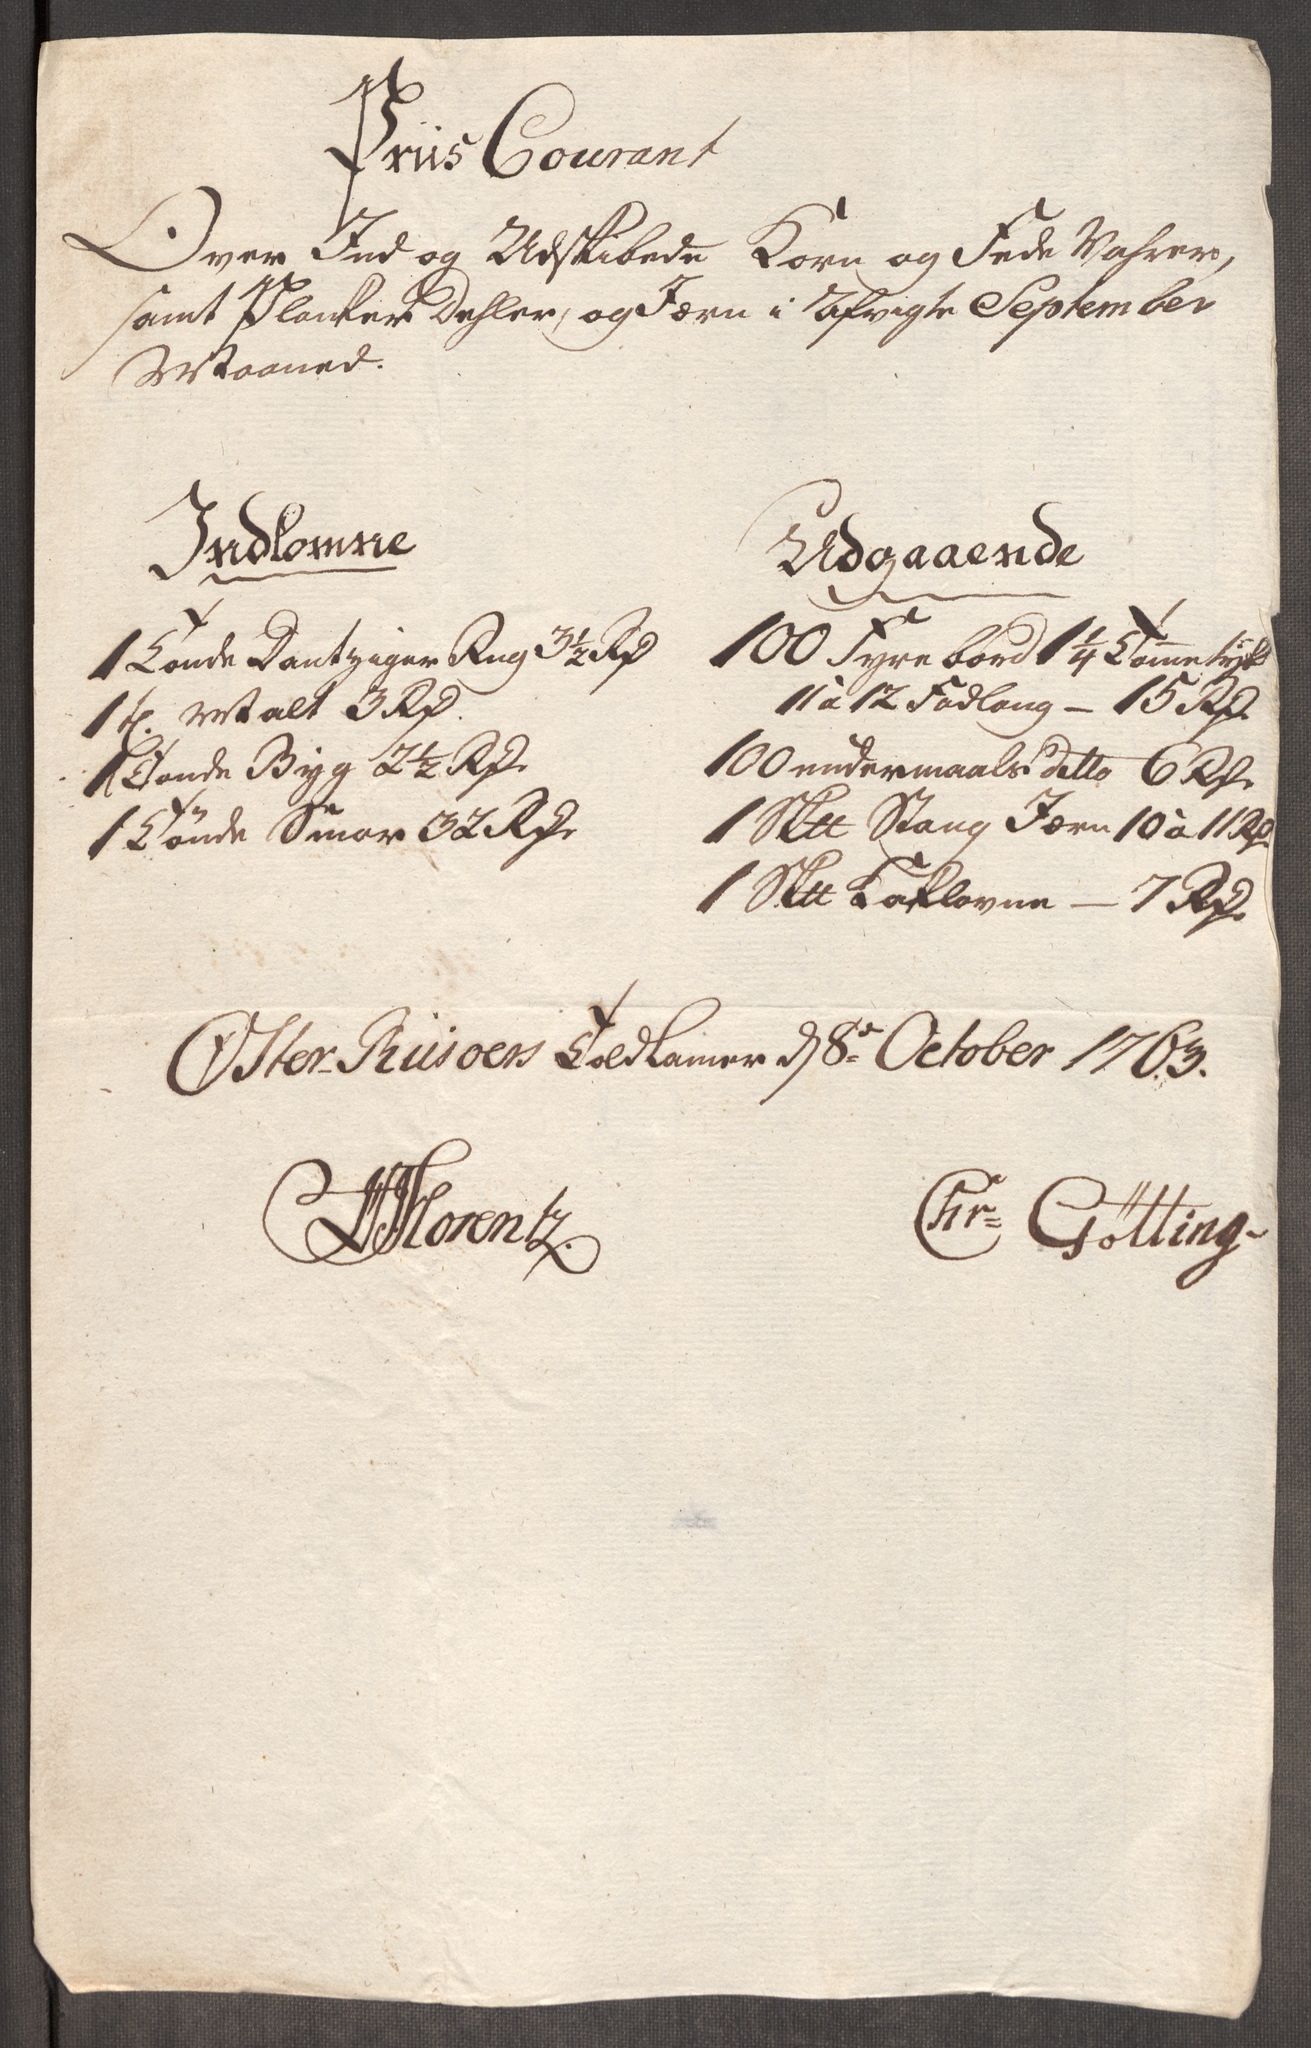 Priis Courant
Over Ind og Udskibede Korn og Fede Vahrer,
samt Planker Dehler, og Jærn i Afvigte September
Maaned.
Indkomne
1 Tønde Dantziger Rug 3½ Rd
1 t. Malt 3 Rd.
1 Tønde Byg 2½ Rd.
1 Tönde Smør 32 Rd.
Udgaaende
100 Fyre bord 1¼ Tomme tyk
11 à 12 Fod lang — 15 Rd.
100 undermaals detto 6 Rd.
1 Sk℔ Stang Jærn 10 à 11 Rd.
1 Sk℔ Kaklovne — 7 Rd.
Øster-Riisøers Toldkamer d 8de October 1763.
Florentz.
Chr= Götting